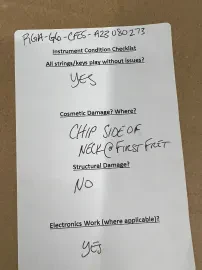 Instrument Condition Checklist
All strings/keys play without issues?
YES
Cosmetic Damage? Where?
CHIP SIDE OF
NECK @ FIRST FRET
Structural Damage?
NO
Electronics Work (where applicable)?
YES